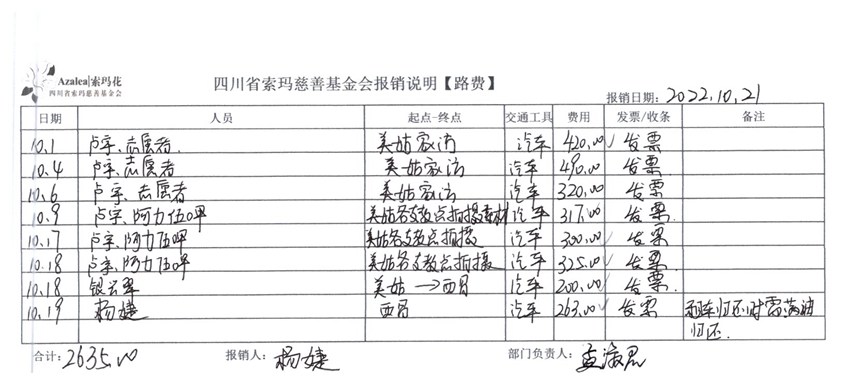 Azalea|索玛花
四川省索玛慈善基金会
四川省索玛慈善基金会报销说明【路费】
报销日期：2022.10.21
日期 人员 起点-终点 交通工具 费用 发票/收条 备注
10.1 卢宇、志愿者 美姑家访 汽车 420.00 发票
10.4 卢宇、志愿者 美姑家访 汽车 490.00 发票
10.6 卢宇、志愿者 美姑家访 汽车 320.00 发票
10.9 卢宇、阿力伍呷 美姑各支教点拍摄素材 汽车 317.00 发票
10.17 卢宇、阿力伍呷 美姑各支教点拍摄 汽车 300.00 发票
10.18 卢宇、阿力伍呷 美姑各支教点拍摄 汽车 325.00 发票
10.18 美姑→西昌 汽车 200.00 发票
10.19 杨婕 西昌 汽车 263.00 发票 租车归还时需满油
归还.
合计：2635.00 报销人：杨婕 部门负责人：